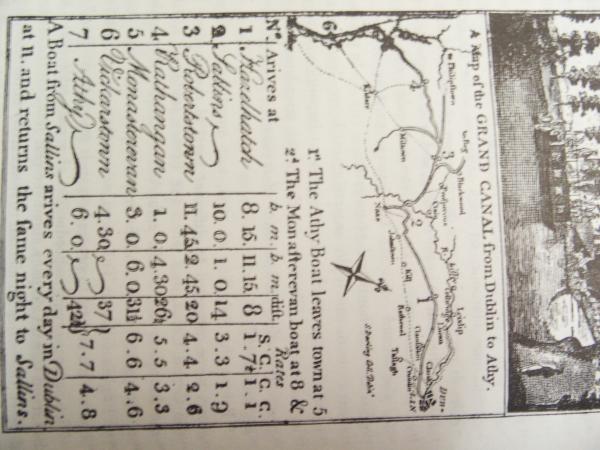 A Map of the GRAND CANAL from Dublin to Athy.
Philipstown
to Bog
Blackwood
Leixlip
DUB-
LIN
Milltown
Kill
Tallagh
Naas
1st. The Athy Boat leaves town at 5
2d. The Monaſterevan boat at 8 &
Rates
No. Arives at h. m. h. m. diſt S. C. C. C.
1 Hazelhatch 8. 15. 11. 15. 8 1. 7½ 1. 1
2 Sallins 10. 0. 1. 0. 14 3. 3 1. 9
3 Robertstown 11. 45 2. 45 20 4. 4 2. 6
4. Rathangan 1. 0. 4. 30 26½ 5. 5 3. 3
5 Monasterevan 3. 0. 6. 0. 31½ 6. 6 4. 6
6 Vickarstown 4. 30 37
7 Athy 6. 0. 42½ 7. 7 4. 8
A Boat from Sallins arives every day in Dublin
at 11. and returns the ſame night to Sallins.